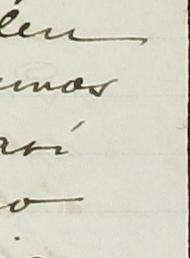 len
umos
así
o